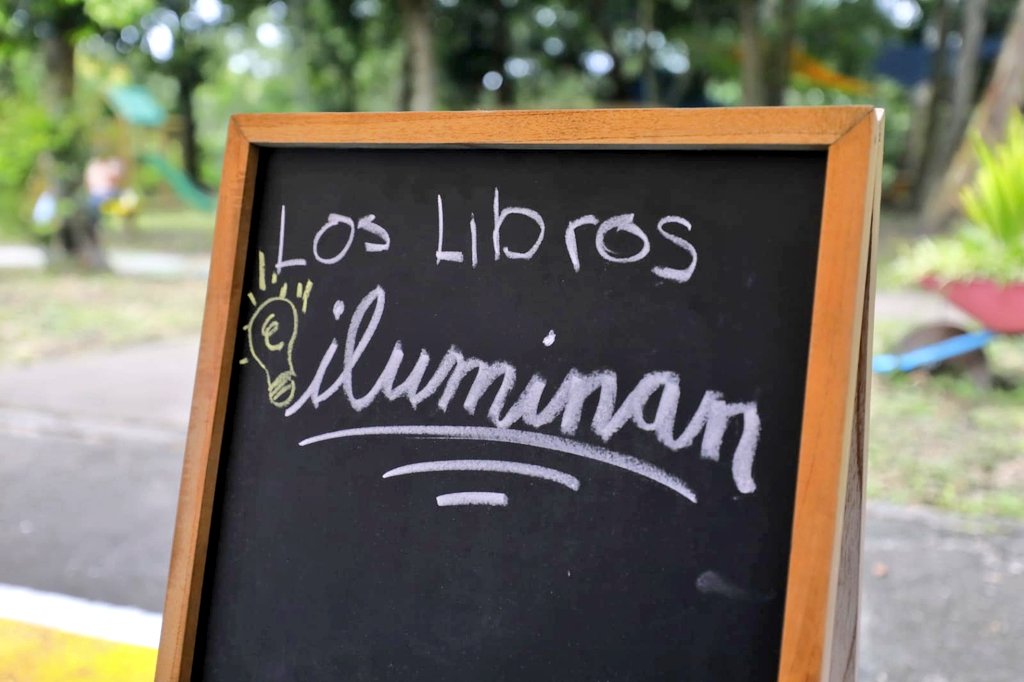 Los Libros
iluminan